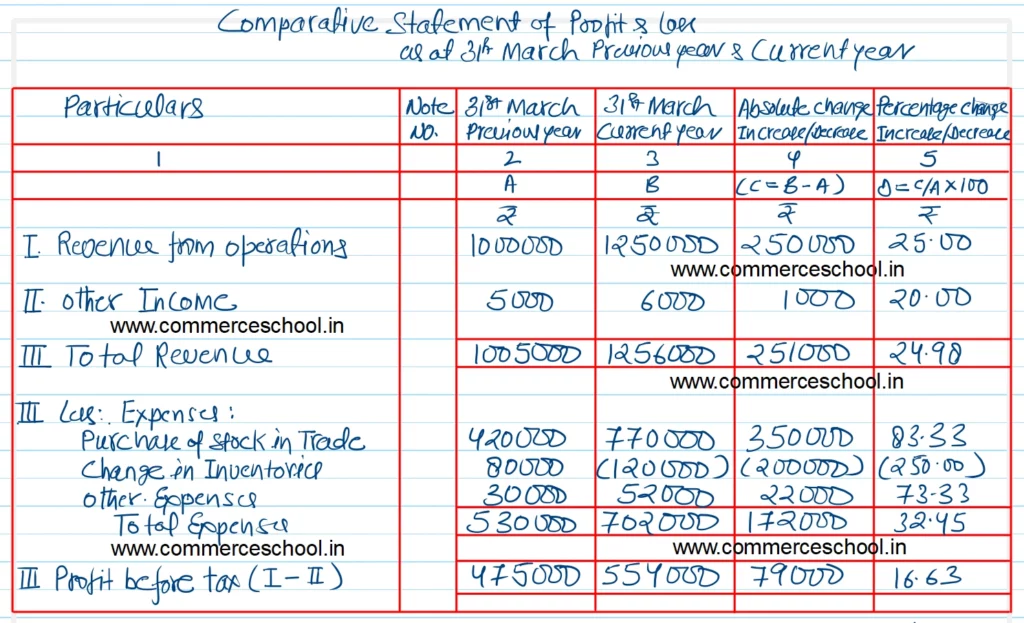 Comparative Statement of Profit & loss
as at 31st March Previous year & Current year
Particulars Note No. 31st March Previous year 31st March Current year Absolute change Increase/Decrease Percentage change Increase/Decrease
1 2 3 4 5
A B (C=B-A) D=C/A×100
₹ ₹ ₹ ₹
I. Revenue from operations 1000000 1250000 250000 25.00
www.commerceschool.in
II. other Income 5000 6000 1000 20.00
www.commerceschool.in
III Total Revenue 1005000 1256000 251000 24.98
www.commerceschool.in
III Less: Expenses:
Purchase of stock in Trade 420000 770000 350000 83.33
Change in Inventories 80000 (120000) (200000) (250.00)
other Expenses 30000 52000 22000 73.33
Total Expenses 530000 702000 172000 32.45
www.commerceschool.in www.commerceschool.in
III Profit before tax (I-II) 475000 554000 79000 16.63